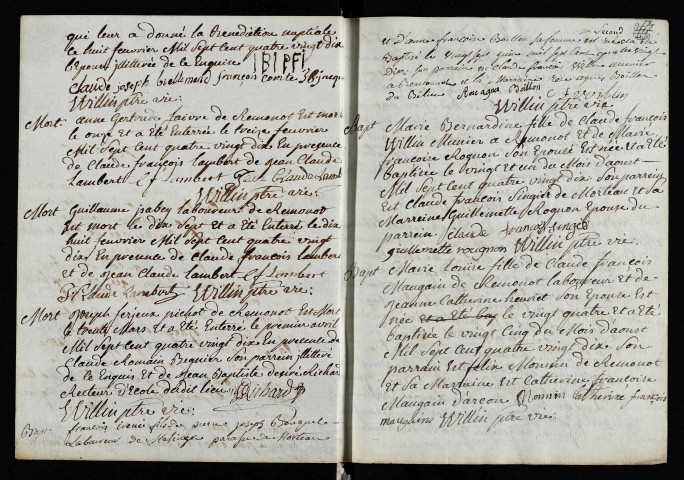 qui leur a donné la Benediction nuptiale
ce huit fevrier Mil Sept Cent quatre vingt dix
Epoux illiterée de la Enquise
Claude joseph
Willin ptre vic:
Mort. anne Gertride faivre de Remonot Est morte
le onze et a Eté Enterrée le treize fevvrier
Mil Sept Cent quatre vingt dix En presence
de Claude françois lambert de jean Claude
Lambert Cf Lambert
Willin ptre vic:
Mort Guillaume jsabey laboureur de Remonot
Est mort le dix Sept et a Eté Enterré le dix
huit fevvrier Mil Sept Cent quatre vingt
dix En presence de Claude francois Lambert
et de jean Claude Lambert Cf Lambert
Claude Lambert Willin ptre vic:
Mort joseph ferjeux pichot de Remonot Est Mort
le trente Mars et a Eté Enterré le premier avril
Mil Sept Cent quatre vingt dix En presence de
Claude Romain Son parrein illiteré
de la Enquis et de jean Baptiste Richard
Recteur d'Ecole dudit lieu Richard
Willin ptre vic:
Bapt. françois fils de joseph
Laboureur de paroisse de Morteau
et d'anne françoise Baillon Sa femme est né et a Eté
Baptisé le vingt sept mil sept cent quatre vingt
dix; son parrein est claude francois Willin munier
a Remonot et la Marraine
du Bélieu Baillon
Willin ptre vic
Bapt Marie Bernardine fille de Claude françois
Willin Munier a Remonot et de Marie
francoise Rognon Son Epouse Est née et a Eté
baptisée le vingt et un du Mois daoust
Mil Sept Cent quatre vingt dix Son parrein
Est Claude francois Singier de Morteau et Sa
Marreine Guillemette Rognon Epouse du
parrein Claude francois Singier
guillemette rougnon Willin ptre vic:
Bapt Marie Louise fille de Claude francois
Maugain de Remonot laboureur et de
jeanne Catherine henriet Son Epouse Est
née et a Eté bap le vingt quatre et a Eté
baptisée le vingt Cinq du Mois daoust
Mil Sept Cent quatre vingt dix Son
parrain Est felix Monnin de Remonot
Et Sa Marraine Est Catherine francoise
Maugain d'arcon Monnin Catherine françois
maugains Willin ptre vic: